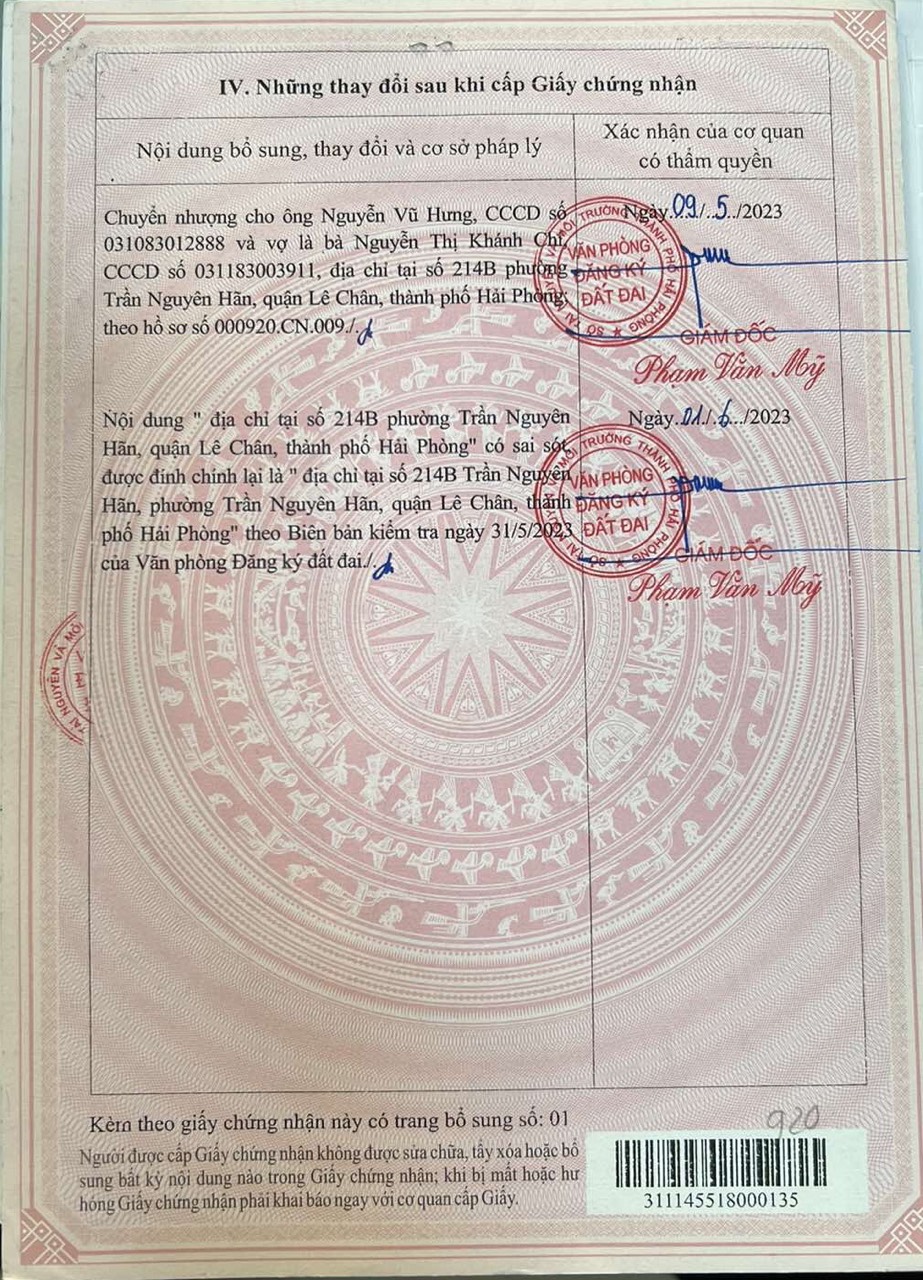 IV. Những thay đổi sau khi cấp Giấy chứng nhận
Nội dung bổ sung, thay đổi và cơ sở pháp lý
Xác nhận của cơ quan
có thẩm quyền
Chuyển nhượng cho ông Nguyễn Vũ Hưng, CCCD số
031083012888 và vợ là bà Nguyễn Thị Khánh Chi,
CCCD số 031183003911, địa chỉ tại số 214B phường
Trần Nguyên Hãn, quận Lê Chân, thành phố Hải Phòng;
theo hồ sơ số 000920.CN.009./.
Ngày 09/..5../2023
VĂN PHÒNG
ĐĂNG KÝ
ĐẤT ĐAI
GIÁM ĐỐC
Phạm Văn Mỹ
Nội dung " địa chỉ tại số 214B phường Trần Nguyên
Hãn, quận Lê Chân, thành phố Hải Phòng" có sai sót
được đính chính lại là " địa chỉ tại số 214B Trần Nguyên
Hãn, phường Trần Nguyên Hãn, quận Lê Chân, thành
phố Hải Phòng" theo Biên bản kiểm tra ngày 31/5/2023
của Văn phòng Đăng ký đất đai./.
Ngày.01/.6.../2023
VĂN PHÒNG
ĐĂNG KÝ
ĐẤT ĐAI
GIÁM ĐỐC
Phạm Văn Mỹ
TÀI NGUYÊN VÀ MÔI
Kèm theo giấy chứng nhận này có trang bổ sung số: 01
920
Người được cấp Giấy chứng nhận không được sửa chữa, tẩy xóa hoặc bổ
sung bất kỳ nội dung nào trong Giấy chứng nhận; khi bị mất hoặc hư
hỏng Giấy chứng nhận phải khai báo ngay với cơ quan cấp Giấy.
311145518000135